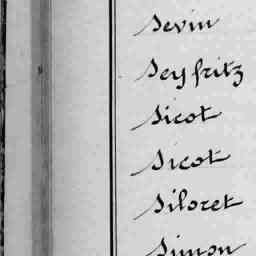 Sevin
Seyfritz
Sicot
Sicot
Siloret
Simon